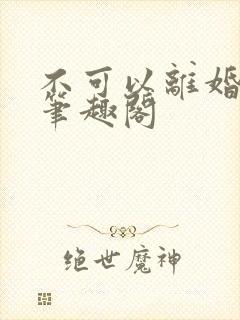 不可以離婚
筆趣閣
绝世魔神